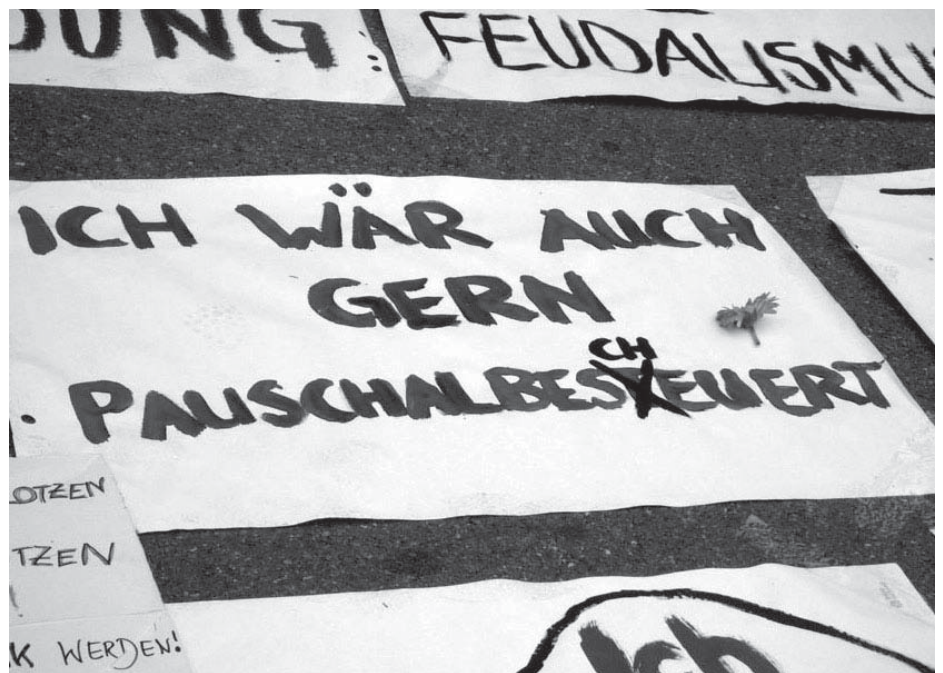 DUNG:
FEUDALISMU
ICH WÄR AUCH
GERN
CH
. PAUSCHALBESXEUERT
OTZEN
TZEN
K WERDEN!
Ich